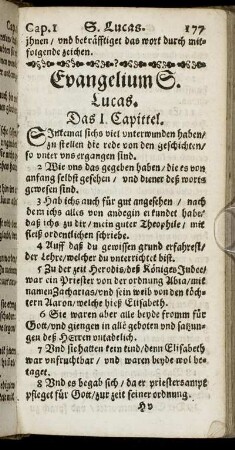 Cap.1 S. Lucas. 177
jhnen / vnd bekräfftiget das wort durch mit-
folgende zeichen.
Evangelium S.
Lucas.
Das I. Capittel.
SIntemal sichs viel unterwunden haben /
zu stellen die rede von den geschichten /
so vnter vns ergangen sind.
2 Wie vns das gegeben haben / die es von
anfang selbst gesehen / vnd diener deß worts
gewesen sind.
3 Hab ichs auch für gut angesehen / nach
dem ichs alles von anbegin erkundet habe /
daß ichs zu dir / mein guter Theophile / mit
fleiß ordentlichen schriebe.
4 Auff daß du gewissen grund erfahrest /
der Lehre / welcher du vnterrichtet bist.
5 Zu der zeit Herodis / deß Königes Judee /
war ein Priester von der ordnung Abia / mit
namen Zacharias / vnd sein weib von den töch-
tern Aaron / welche hieß Elisabeth.
6 Sie waren aber alle beyde fromm für
Gott / vnd giengen in allē geboten vnd satzun-
gen deß HErren vntadelich.
7 Vnd sie hatten kein kind / denn Elisabeth
war vnfruchtbar / vnd waren beyde wol be-
taget.
8 Vnd es begab sich / da er priestersampt
pfleget für Gott / zur zeit seiner ordnung.
Hv